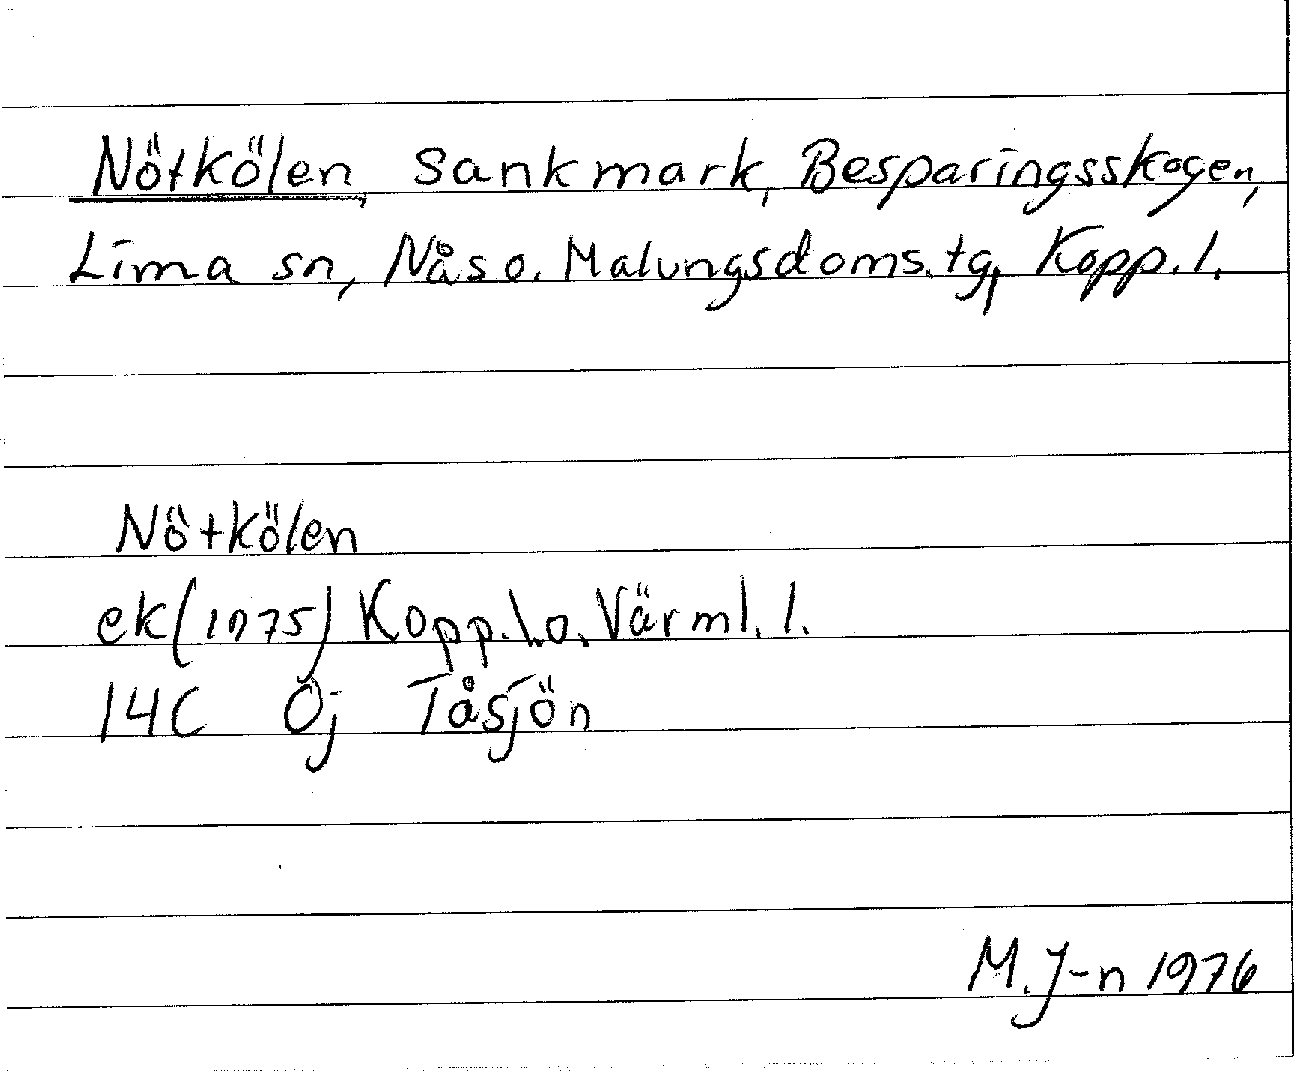 Nötkölen, sankmark, Besparingsskogen,
Lima sn, Nås o. Malungs doms.tg, Kopp. l.
Nötkölen
ek (1975) Kopp.l.o. Värml. l.
14C Öj Tåsjön
M. J-n 1976